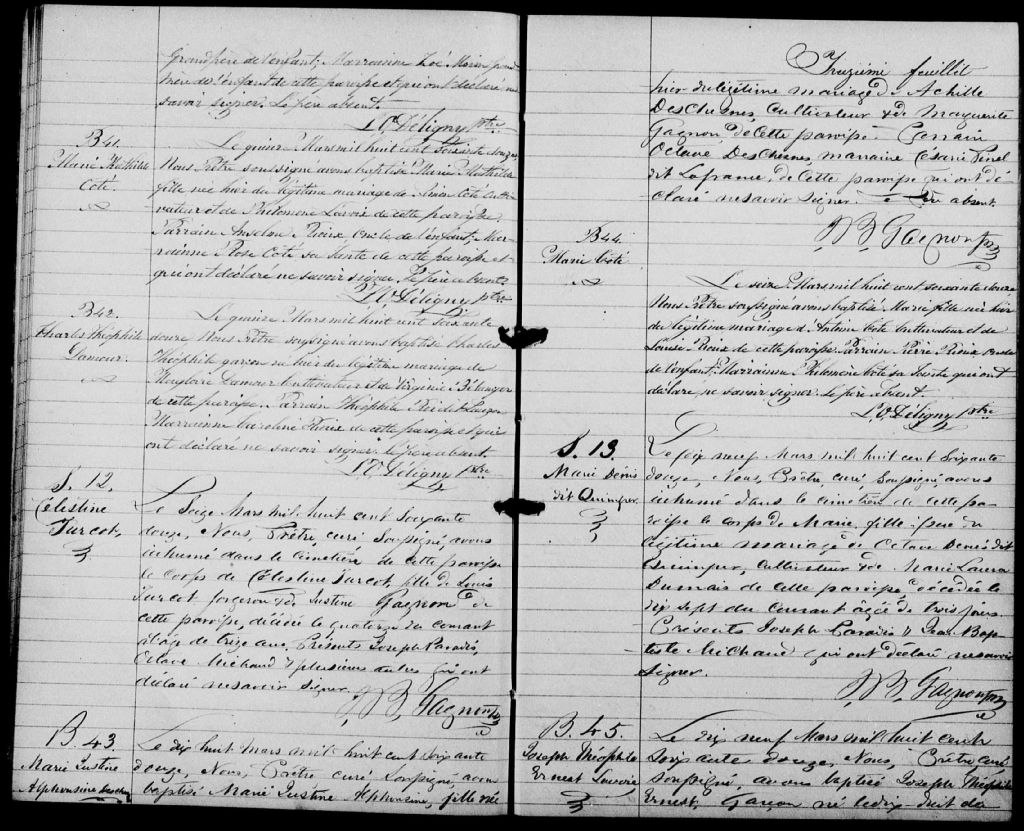 Grand père de l'enfant; Marrainne Zoé Morin
mère de l'enfant de cette paroisse et qui ont déclaré ne
savoir signer. Le père absent.
L. O. Déligny ptre
B 41.
Marie Mathilde
Côté.
Le quinze Mars mil huit cent soixante douze,
Nous Prêtre soussigné avons baptisé Marie Mathilde
fille née hier du légitime mariage de Côté Culti-
vateur et de Philomene Lavoie de cette paroisse
Parrain Anselme Rioux Oncle de l'enfant; Mar-
rainne Rose Côté sa tante de cette paroisse et
qui ont déclaré ne savoir signer. Le père absent
L. O. Déligny ptre
B 42.
Charles Théophile
Damour.
Le quinze Mars mil huit cent soixante
douze Nous Prêtre soussigné avons baptisé Charles
Théophile garçon né hier du légitime mariage de
Magloire Damour Cultivateur et de Virginie Bélanger
de cette paroisse. Parrain Théophile
Marrainne Caroline de cette paroisse et qui
ont déclaré ne savoir signer. Le père absent.
L. O. Déligny ptre
S. 12.
Célestine
Turcot,
Le Seize Mars mil huit cent Soixante
douze, Nous, Prêtre, curé Soussigné, avons
inhumé dans le cimetière de cette paroisse
le corps de Célestine Turcot, fille de Louis
Turcot forgeron & de Justine Gagnon de
cette paroisse, décédée le quatorze du courant
à l'âge de treize ans. Présents Joseph Paradis,
Octave Michaud & plusieurs autres qui ont
déclaré ne savoir signer.
J. B. Gagnon ptre
B. 43.
Marie Justine
Alphonsine
Le dix huit Mars mil huit cent soixante
douze, Nous, Prêtre curé Soussigné, avons
baptisé Marie Justine Alphonsine, fille née
Treizième feuillet
hier du légitime mariage d'Achille
DesChesnes, Cultivateur & de Marguerite
Gagnon de Cette paroisse. Parrain
Octave DesChesnes, marraine Césarie Pinel
dit Lafrance, de Cette paroisse qui ont dé-
claré ne savoir signer. Le Père absent.
J. B. Gagnon ptre
B 44.
Marie Côté
Le seize Mars mil huit cent soixante douze
Nous Prêtre soussigné avons baptisé Marie fille née hier
de légitime mariage d'Antoine Coté Cultivateur et de
Louise Rioux de cette paroisse. Parrain Pierre Rioux Oncle
de l'enfant; Marrainne Philomène Coté sa tante qui ont
déclaré ne savoir signer. Le père absent.
L. O. Déligny ptre
S. 13.
Marie Denis
dit Quimper,
Le dix neuf Mars mil huit cent Soixante
douze, Nous, Prêtre, curé Soussigné avons
inhumé dans le cimetière de cette pa-
roisse le corps de Marie, fille issue du
légitime mariage de Octave Denis dit
Quimper, Cultivateur & de Marie Laura
Dumais de cette paroisse, décédée le
dix sept du courant âgée de trois jours
Présents Joseph Paradis & Jean Bap-
tiste Michaud qui ont déclaré ne savoir
signer.
J. B. Gagnon ptre
B. 45.
Joseph Théophile
Ernest Lavoie
Le dix neuf Mars mil huit cent
soixante douze, Nous, Prêtre curé
soussigné, avons baptisé Joseph Théophile
Ernest, Garçon né le dix huit du